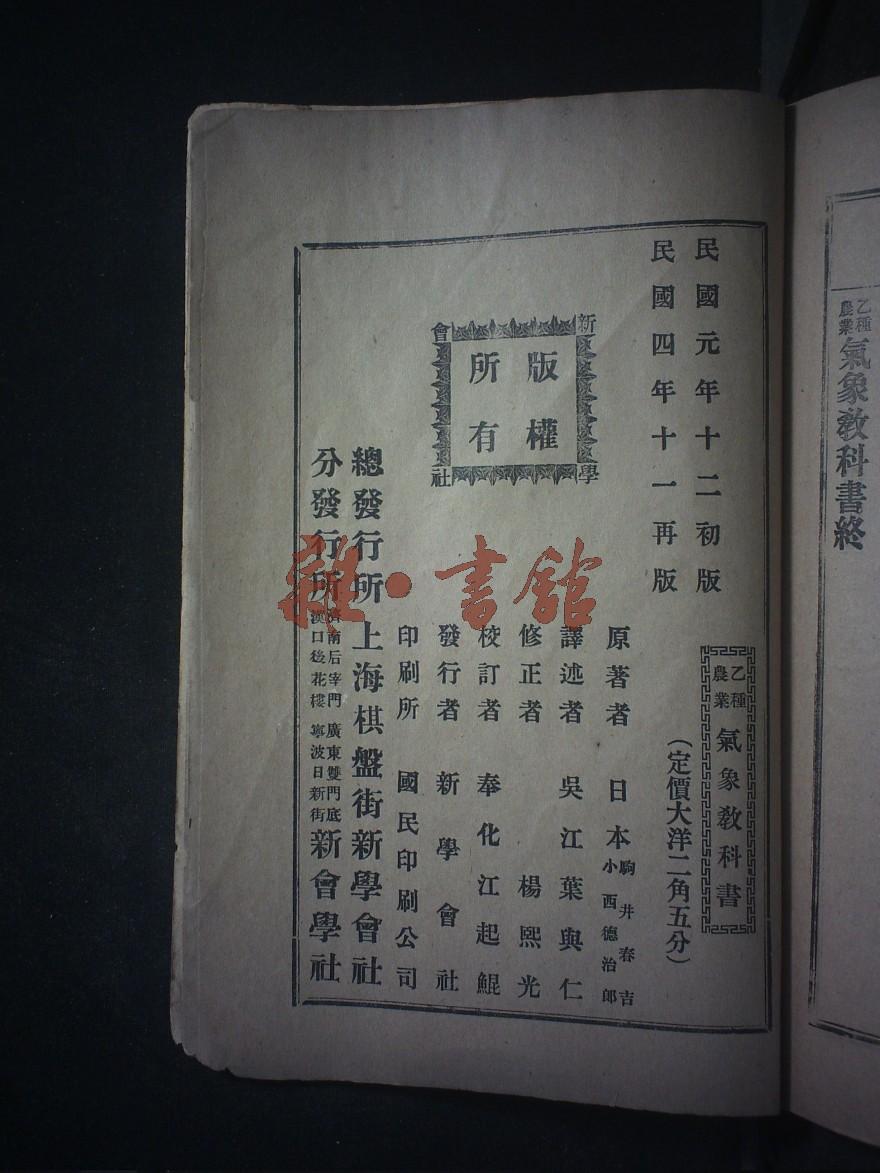 乙種
農業
氣象教科書終
民國元年十二初版
民國四年十一再版
新學會社
版權
所有
乙種
農業
氣象教科書
(定價大洋二角五分)
原著者 日本
駒井春吉
小西德治郎
譯述者 吳江葉與仁
修正者 楊熙光
校訂者 奉化江起鯤
發行者 新學會社
印刷所 國民印刷公司
總發行所 上海棋盤街新學會社
分發行所
濟南后宰門 廣東雙門底
漢口後花樓 寧波日新街
新會學社
雜·書館